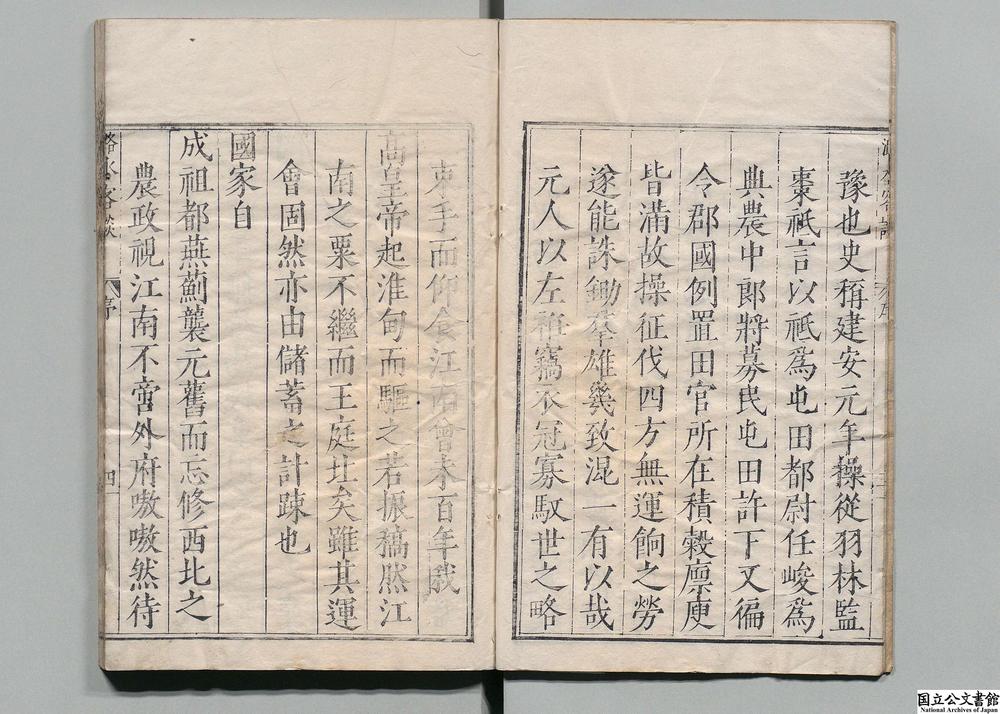 豫也史稱建安元年操從羽林監
棗祗言以祗爲屯田都尉任峻爲
典農中郎將募民屯田許下又徧
令郡國例置田官所在積穀廪庾
皆滿故操征伐四方無運餉之勞
遂能誅鋤羣雄幾致混一有以哉
元人以左袵竊衣冠寡馭世之略
束手而仰食江南曾未百年我
高皇帝起淮甸而驅之若振稿然江
南之粟不繼而王庭圵矣雖其運
會固然亦由儲蓄之計踈也
國家自
成祖都燕薊襲元舊而忘修西北之
農政視江南不啻外府嗷嗷然待
潞水客談
序
四
国立公文書館
National Archives of Japan